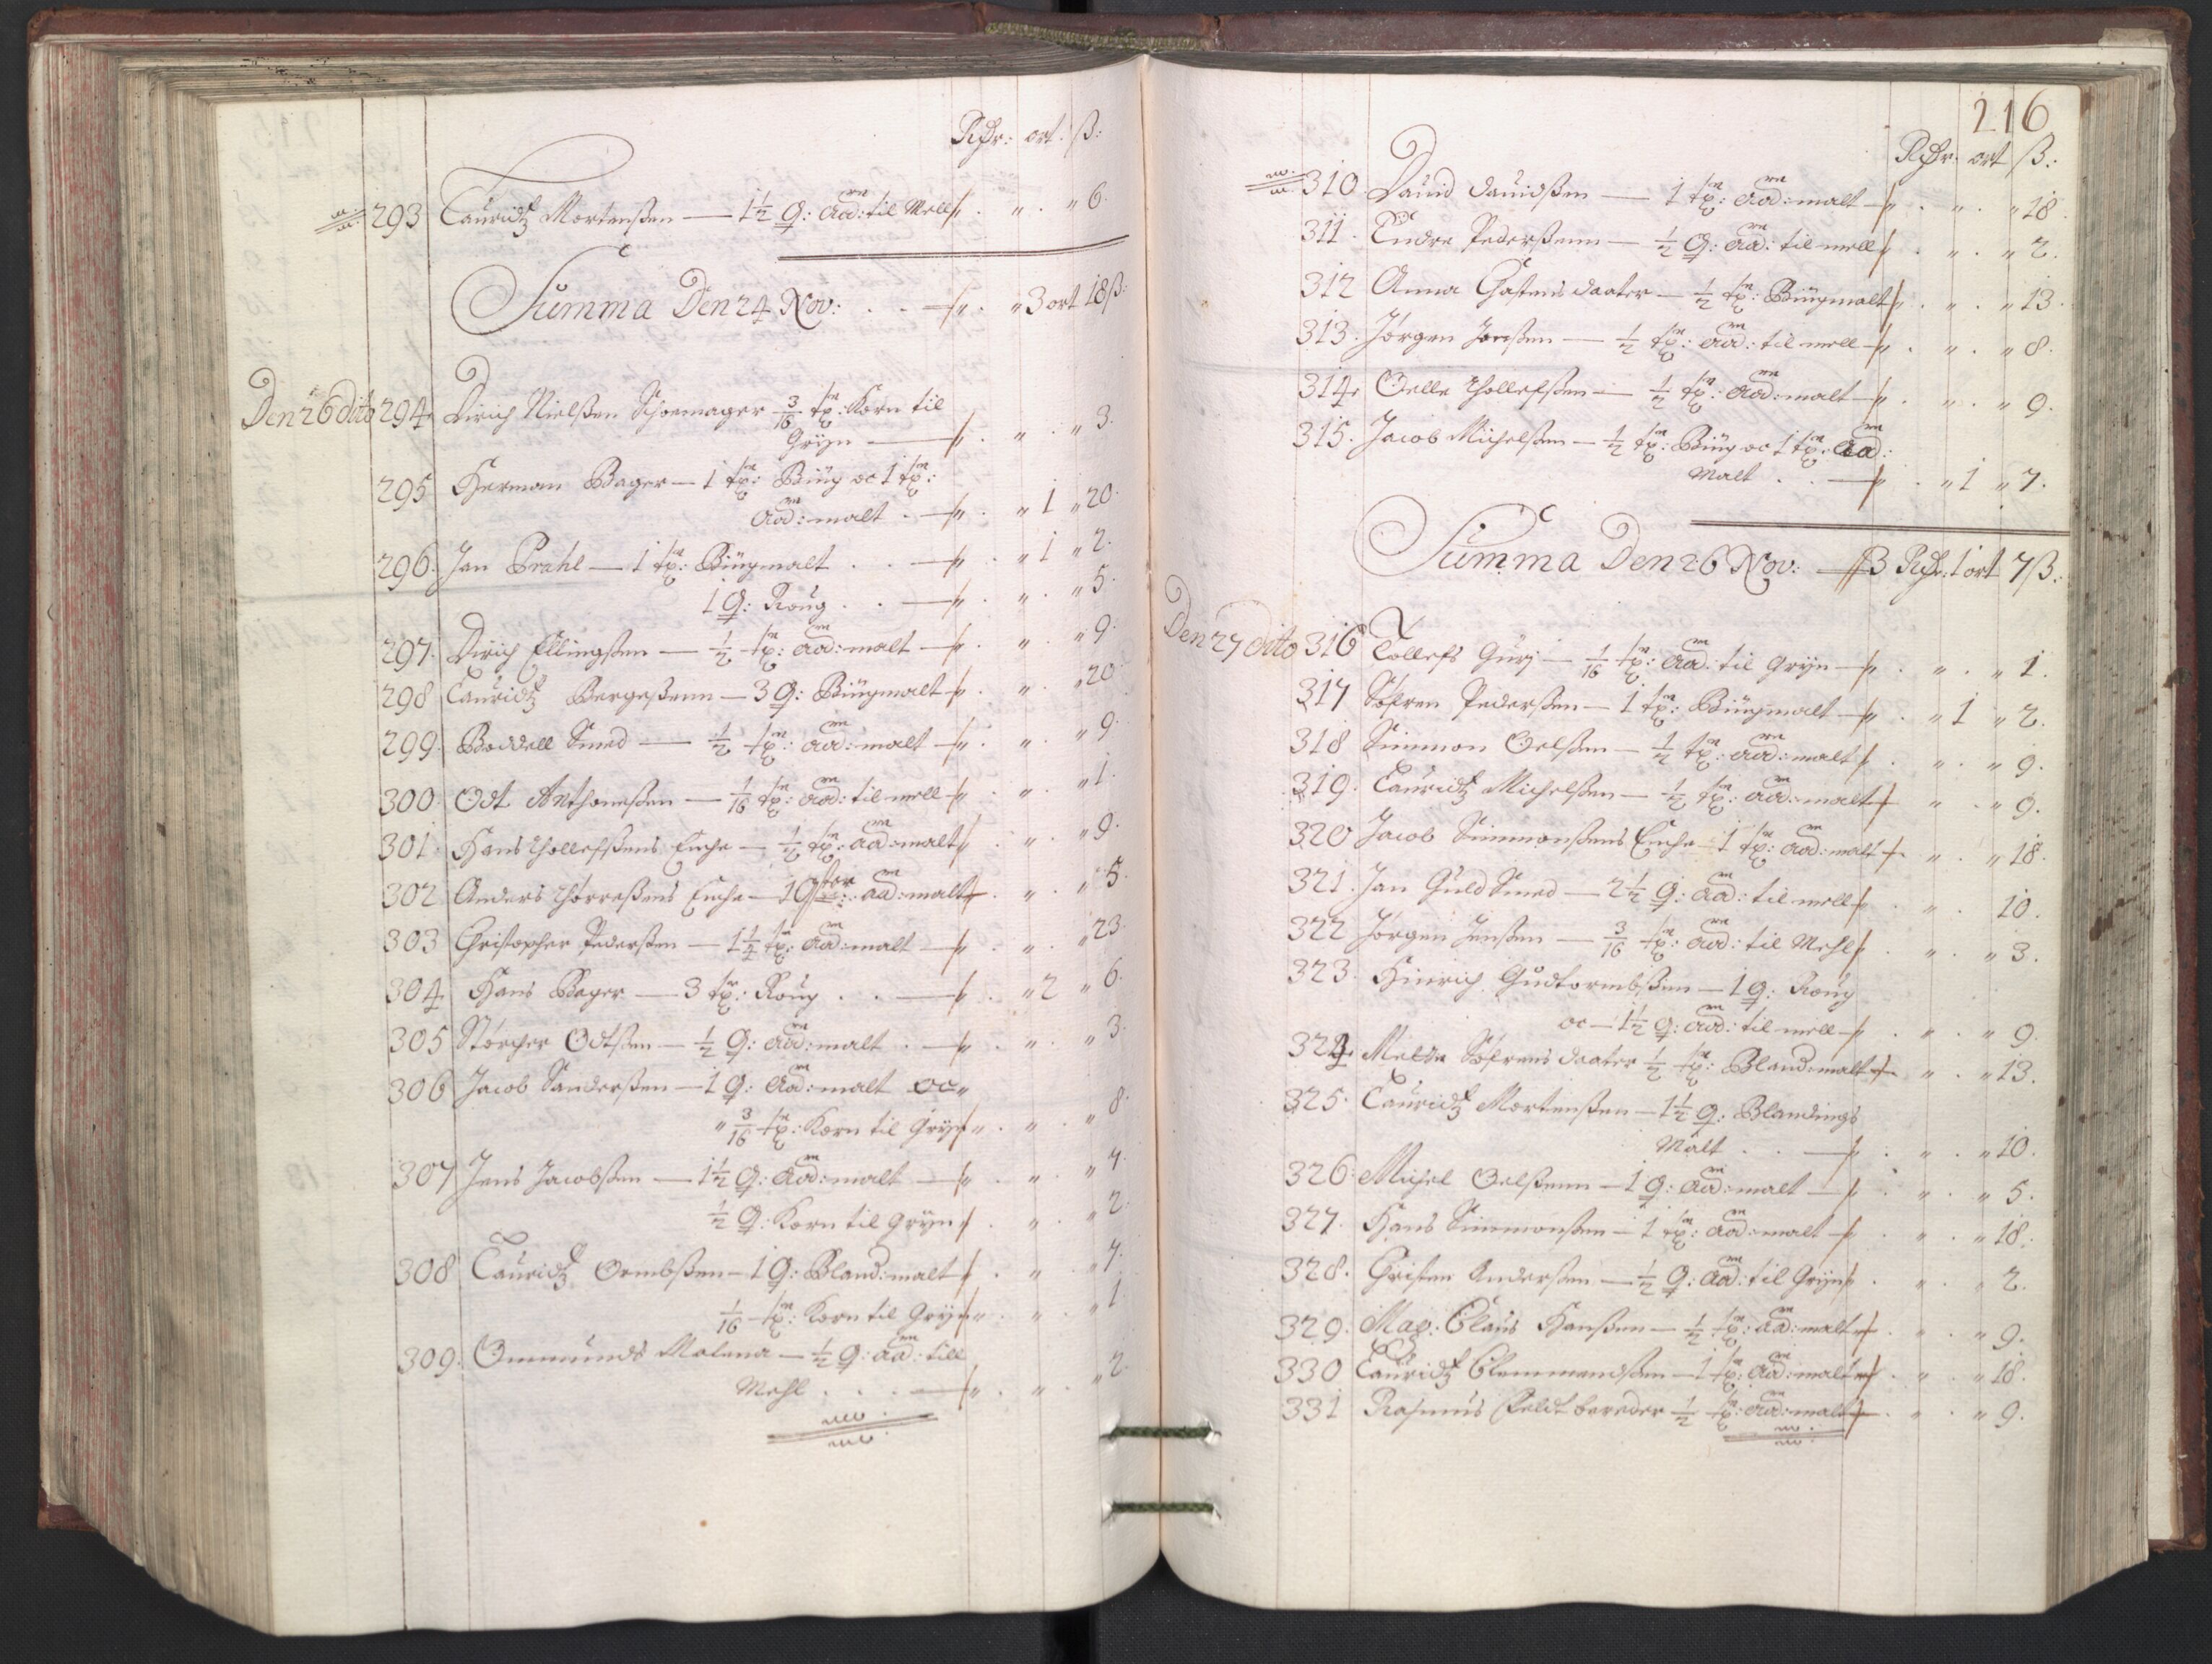 Rdr: ort: ß:
293 Lauridtz Mortenßen — 1½ Q: aad: til Mell " . " . " 6.
Summa Den 24 Nov: . . — " . " 3 ort 18 ß:
Den 26 dito 294 Dirich Nielßen Schoemager 3/16 tn: Korn til
Gryn — " . " . " 3.
295 Herman Bager — 1 tn: Biug oc 1 tn:
aad: malt . — " . " 1 " 20.
296. Jan Prahl — 1 tn: Biugmalt . . — " . " 1 " 2.
1 Q: Roug . . — " . " . " 5.
297. Dirich Ellingßen — ½ tn: aad: malt — " . " . " 9.
298 Lauridtz Bergeßenn — 3 Q: Biugmalt " . " . " 20.
299. Boddell Smed — ½ tn: aad: malt — " . " . " 9.
300. Odt Anthoneßen — 1/16 tn: aad: til mell — " . " . " 1.
301. Hans Thollefßens Encke — ½ tn: aad: malt " . " . " 9.
302 Anders Thorreßens Encke — 1 Qter: aad: malt . " . " 5.
303 Christopher Pederßen — 1¼ tn: aad: malt — " . " . " 23.
304 Hans Bager — 3 tn: Roug . . — " . " 2 " 6.
305 Störcher Odtßen — ½ Q: aad: malt . — " . " . " 3
306 Jacob Sanderßen — 1 Q: aad: malt oc "
" 3/16 tn: Korn til Gryn " . " . " 8.
307 Jens Jacobßen — 1½ Q: aad: malt — " . " . " 7.
½ Q: Korn til Gryn " . " . " 2.
308 Lauridtz Ormbßen — 1 Q: Bland: malt " . " . " 7.
1/16 tn: Korn til Gryn " . " . " 1
309. Ommunds Malena — ½ Q: aad: till
Mehl . . . — " . " . " 2
216
Rdr: ort ß:
310 Dauid Dauidßen — 1 tn: aad: malt — " . " . " 18.
311. Endre Pederßenn — ½ Q: aad: til mell " . " . " 2.
312 Anna Chastens daater — ½ tn: Biugmalt " . " . " 13.
313. Jörgen Jenßen — ½ tn: aad: til mell — " . " . " 8.
314. Oelle Thollefßen — ½ tn: aad: malt — " . " . " 9.
315. Jacob Michelßen — ½ tn: Biug oc 1 tn: aad:
Malt . . — " . " 1 " 7.
Summa Den 26 Nov: — 3 Rdr: 1 ort 7 ß:
Den 27 dito 316 Tollefs Guri — 1/16 tn: aad: til Gryn — " . " . " 1.
317 Söfren Pederßen — 1 tn: Biugmalt — " . " 1 " 2.
318 Simmon Oelßen — ½ tn: aad: malt " . " . " 9.
319. Lauridtz Michelßen — ½ tn: aad: malt " . " 9.
320 Jacob Simmonßens Encke 1 tn: aad: malt " . " 18.
321. Jan Guld Smed — 2½ Q: aad: til mell " . " . 10.
322 Jörgen Jenßen — 3/16 tn: aad: til Mehl " . " . " 3.
323. Hinrich Gudtormbßen — 1 Q: Roug
oc — 1½ Q: aad: til mell — " . " . " 9.
324. Melte Söfrens daater ½ tn: Bland: malt " . " 13.
325. Lauridtz Mortenßen — 1½ Q: Blandings
Malt . . — " . " . " 10.
326. Michel Oelßenn — 1 Q: aad: malt — " . " . " 5.
327. Hans Simmonßen — 1 tn: aad: malt — " . " . " 18.
328. Christen Anderßen — ½ Q: aad: til Gryn " . " . " 2.
329. Mag: Claus Hanßen — ½ tn: aad: malt " . " . " 9.
330 Lauridtz Clemmendßen — 1 tn: aad: malt " . " . " 18.
331 Rasmus Feldt bereder ½ tn: aad: malt " . " . " 9.